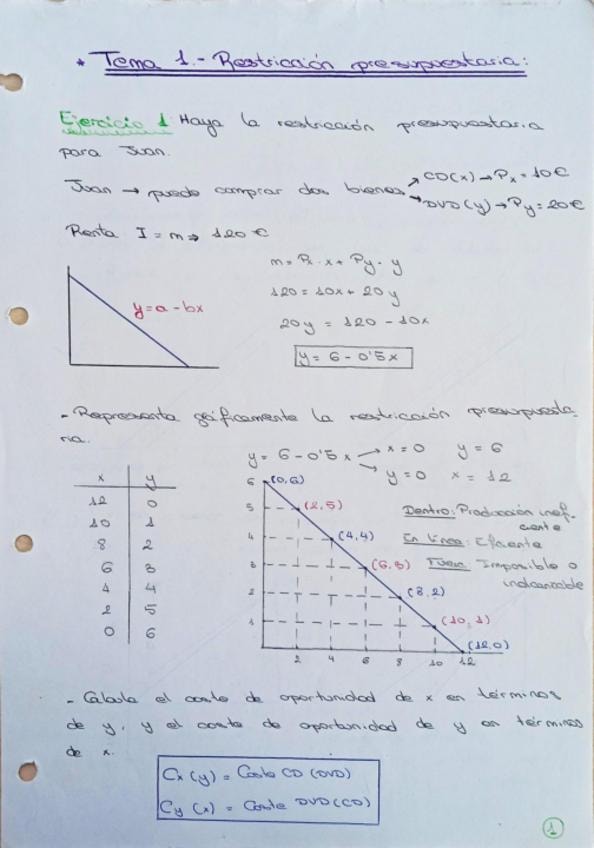 * Tema 1.- Restricción presupuestaria:
Ejercicio 1 Haya la restricción presupuestaria
para Juan.
Juan → puede comprar dos bienes → CD(x) → Px = 10€
→ DVD(y) → Py = 20€
Renta I = m ⇒ 120 €
m = Px · x + Py · y
120 = 10x + 20y
y = a - bx
20y = 120 - 10x
y = 6 - 0'5x
- Representa gráficamente la restricción presupuesta-
ria.
y = 6 - 0'5x → x = 0 y = 6
→ y = 0 x = 12
x y
12 0
10 1
8 2
6 3
4 4
2 5
0 6
6 (0,6)
5 (2,5)
4 (4,4)
3 (6,3)
2 (8,2)
1 (10,1)
(12,0)
2 4 6 8 10 12
Dentro: Producción inef-
ciente
En línea: Eficiente
Fuera: Imposible o
inalcanzable
- Calcula el coste de oportunidad de x en términos
de y, y el coste de oportunidad de y en términos
de x.
Cx (y) = Coste CD (DVD)
Cy (x) = Coste DVD (CD)
1